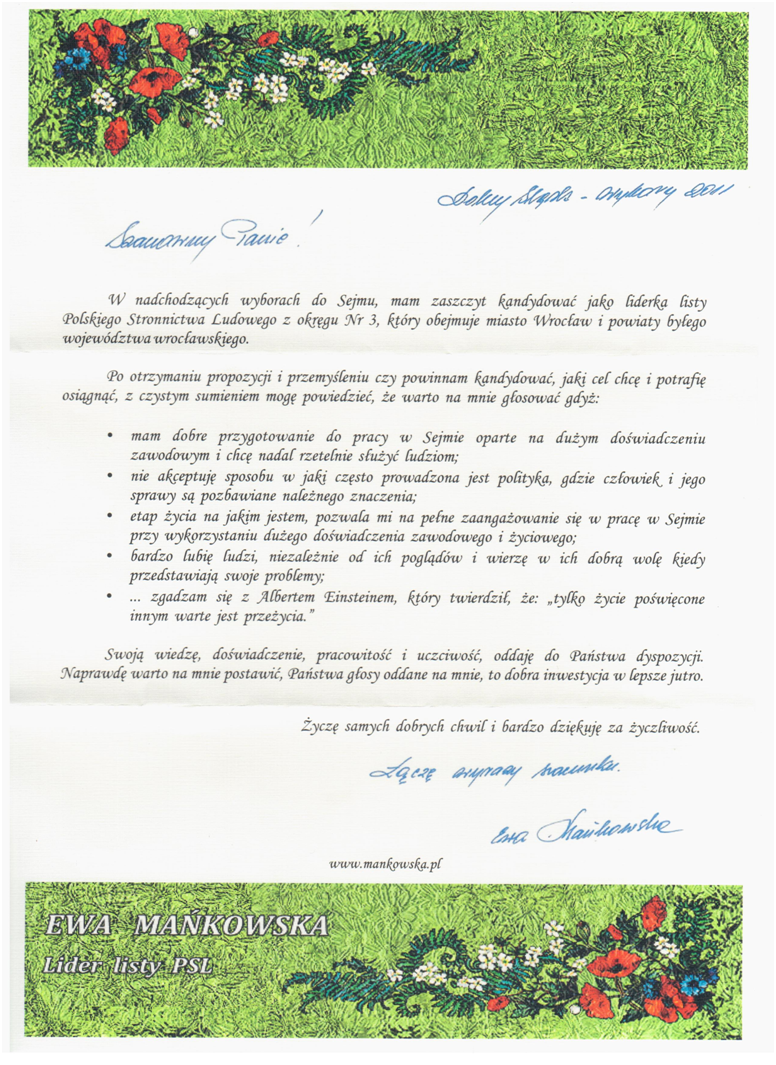 Dolny Śląsk - wybory 2011
Szanowny Panie!
W nadchodzących wyborach do Sejmu, mam zaszczyt kandydować jako liderka listy
Polskiego Stronnictwa Ludowego z okręgu Nr 3, który obejmuje miasto Wrocław i powiaty byłego
województwa wrocławskiego.
Po otrzymaniu propozycji i przemyśleniu czy powinnam kandydować, jaki cel chcę i potrafię
osiągnąć, z czystym sumieniem mogę powiedzieć, że warto na mnie głosować gdyż:
• mam dobre przygotowanie do pracy w Sejmie oparte na dużym doświadczeniu
zawodowym i chcę nadal rzetelnie służyć ludziom;
• nie akceptuję sposobu w jaki często prowadzona jest polityka, gdzie człowiek i jego
sprawy są pozbawiane należnego znaczenia;
• etap życia na jakim jestem, pozwala mi na pełne zaangażowanie się w pracę w Sejmie
przy wykorzystaniu dużego doświadczenia zawodowego i życiowego;
• bardzo lubię ludzi, niezależnie od ich poglądów i wierzę w ich dobrą wolę kiedy
przedstawiają swoje problemy;
• ... zgadzam się z Albertem Einsteinem, który twierdził, że: „tylko życie poświęcone
innym warte jest przeżycia.”
Swoją wiedzę, doświadczenie, pracowitość i uczciwość, oddaję do Państwa dyspozycji.
Naprawdę warto na mnie postawić, Państwa głosy oddane na mnie, to dobra inwestycja w lepsze jutro.
Życzę samych dobrych chwil i bardzo dziękuję za życzliwość.
Łączę wyrazy szacunku.
Ewa Mańkowska
www.mankowska.pl
EWA MAŃKOWSKA
Lider listy PSL